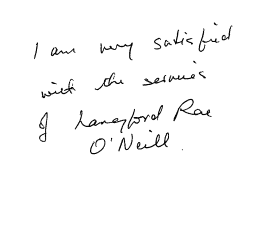 I am very satisfied
with the services
of Langford Rae
O'Neill.